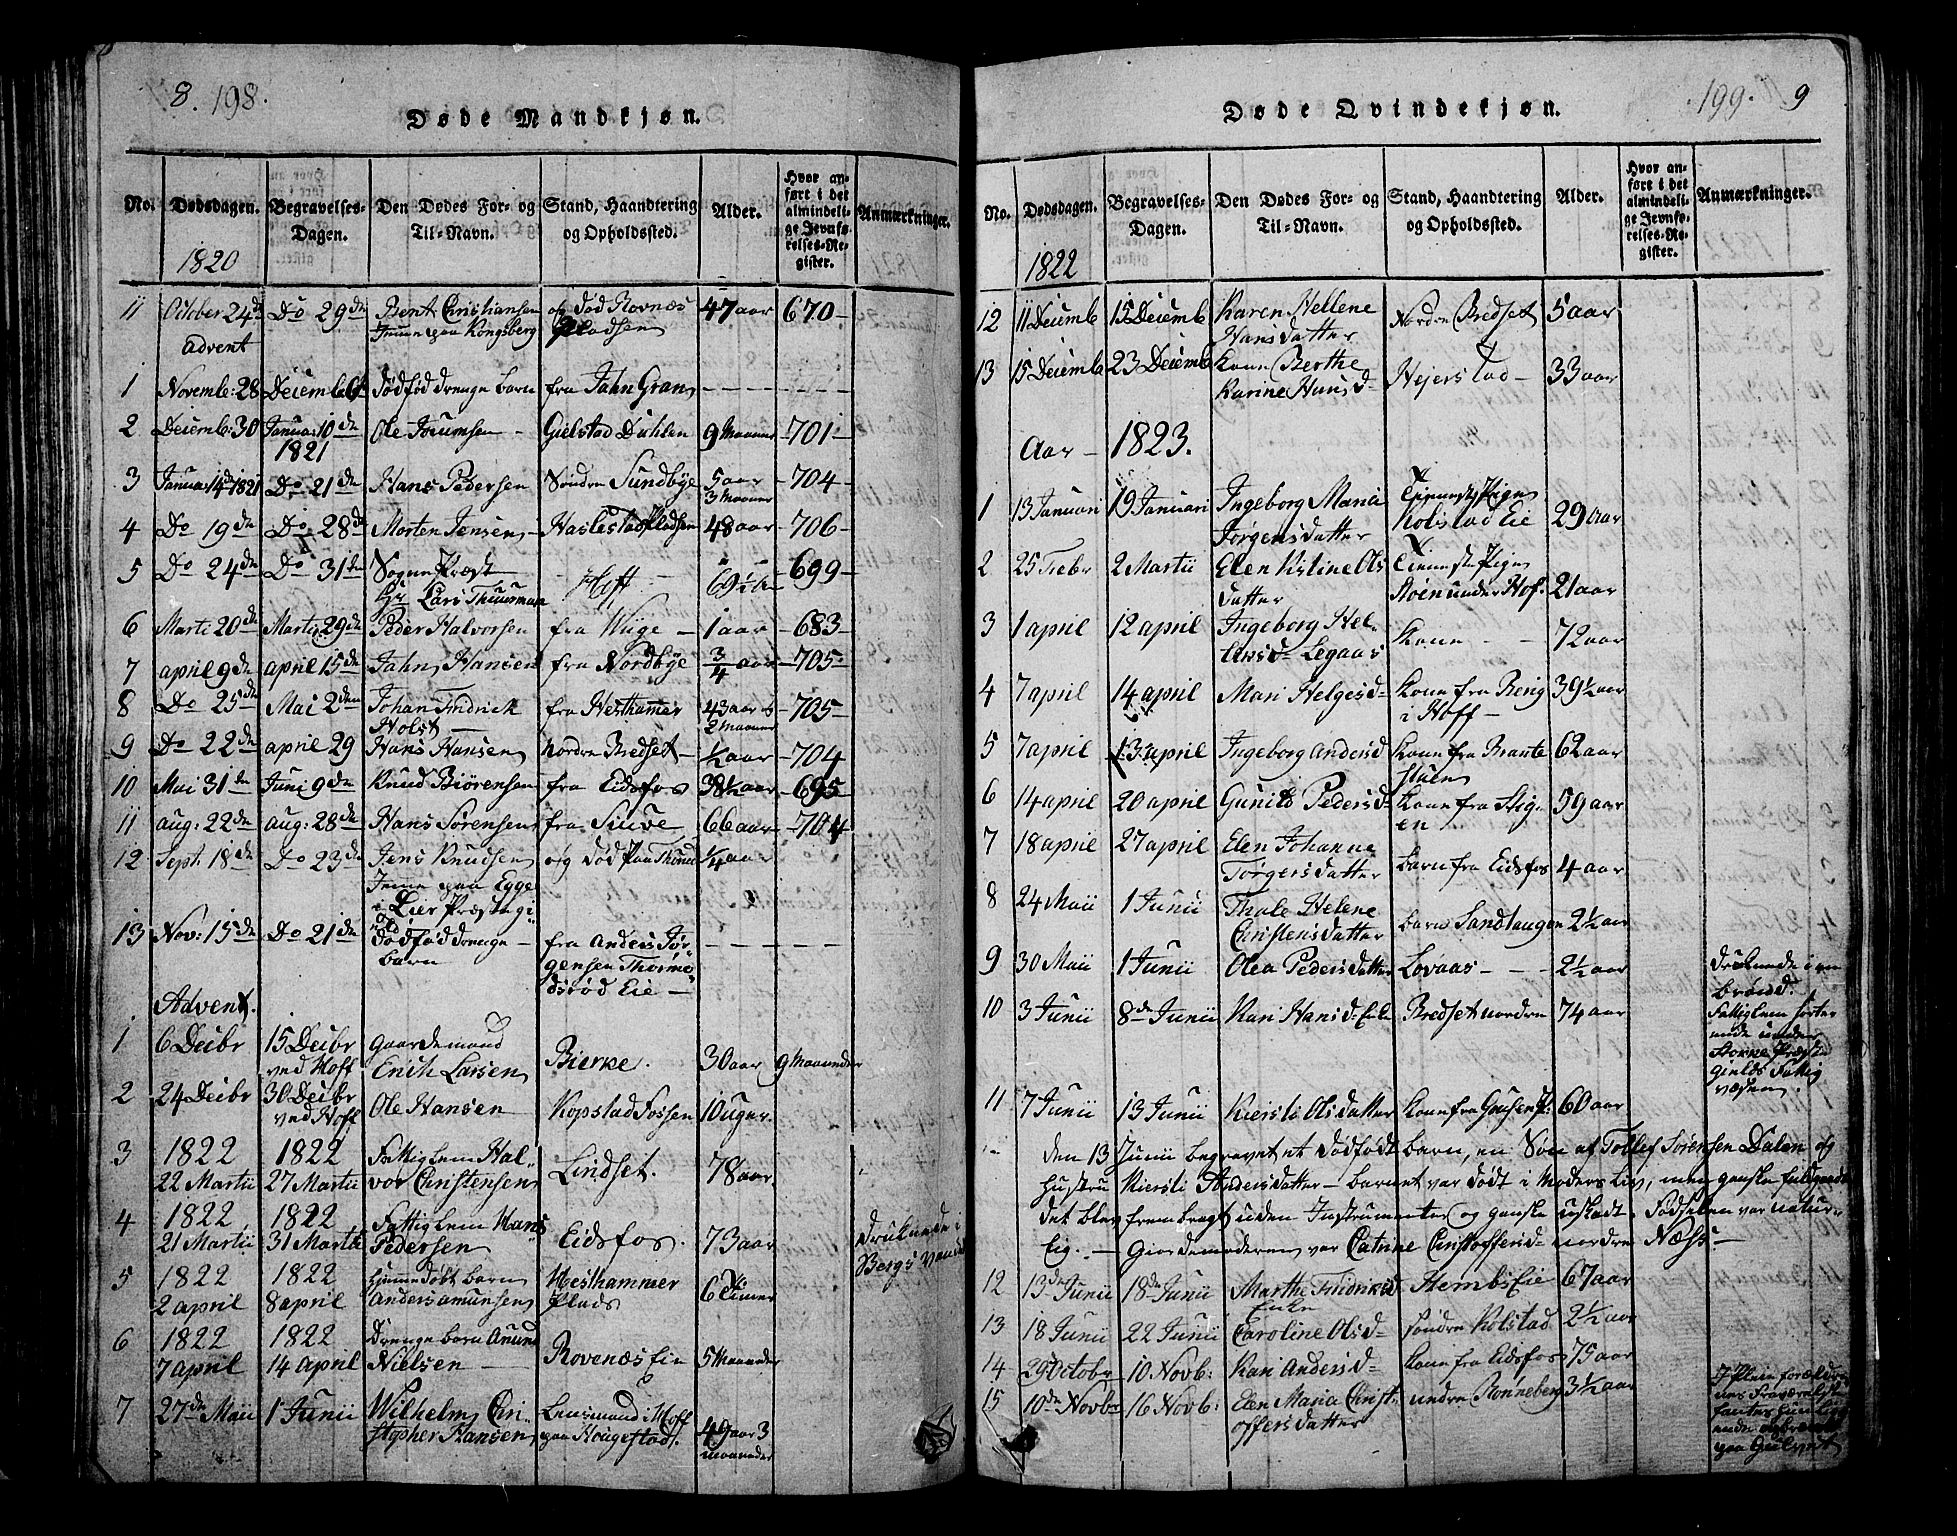 8. 198.
Døde Mandkjøn.
No.
Dødsdagen.
Begravelses-
Dagen.
Den Dødes For- og
Til-Navn.
Stand, Haandtering
og Opholdssted.
Alder.
Hvor an-
ført i det
almindeli-
ge Jevnfø-
relses-Re-
gister.
Anmærkninger.
1820
11 October 24de Do 29de Bent Christiansen og død Rovnæs 47 aar 670
hjemme paa Kongsberg Pladsen
Advent
1 Novemb: 28 Decembr 6te dødfød drenge barn fra Jahn Gran
2 Decemb: 30 Januar 10de Ole Gielstad Dahlen 9 Maaned 701
1821
3 Januar 14de 1821 Do 21de Hans Pedersen Søndre Sundbye 5 aar 704
3 Maaned
4 Do 19de Do 28de Morten Jensen Haslestad Pladsen 48 aar 706
5 Do 24de Do 31te Sogne Præst Hoff 69½ 699
Hr Lars Thuurman
6 Marti 20de Marti 29de Peder Halvorsen fra Wiige 1 aar 683
7 april 9de april 15de Jahn Hansen fra Nordbye ¾ aar 705
8 Do 25de Mai 2den Johan Fredrick fra Hesthamer 43 aar 705
Holst 2 Maaneder
9 Do 22de april 29 Hans Hansen Nordre Bredset ½ aar 704
10 Mai 31te Juni 9de Knud Biørensen fra Eidsfos 38½ aar 695
11 aug: 22de aug: 28de Hans Sørensen fra 66 aar 704
12 Sept. 18de Do 23de Jens Knudsen og død paa ¼ aar
hjemme paa Egge
i Lier Præstegi
ald
13 Nov: 15de Do 21de dødfød drenge fra Anders Jør
barn gensen Thormø
dsrød Eie
Advent.
1 6 Decbr 15 Decbr Gaardemand Bierke. 30 aar 9 Maaneder
ved Hoff Erich Larsen
2 24 Decbr 30 Decbr Ole Hansen Kopstad Fossen 10 Uger.
ved Hoff
3 1822 1822 Fattiglem Hal- Lindset. 78 aar
22 Martii 27 Martii vor Christensen
4 1822 1822 Fattiglem Hans Eidsfos. 73 aar Druknede i
21 Martii 31 Martii Pedersen Bergs Vand
5 1822 1822 hjemmedøbt barn Hesthammer 6 Timer
2 april 8 april Anders Amunsen Plads
6 1822 1822 Drenge barn Anund Rovenæs Eie 5 Maaneder
7 april 14 april Nielsen
7 27de Maii 1 Junii Wilhelm Chri- Lensmand i Hoff 49 aar 3
stopher Hansen paa Hougestad. maaneder
199. 9
Døde Qvindekjøn.
No.
Dødsdagen.
Begravelses-
Dagen.
Den Dødes For- og
Til-Navn.
Stand, Haandtering
og Opholdssted.
Alder.
Hvor an-
ført i det
almindeli-
ge Jevnfø-
relses-Re-
gister.
Anmærkninger.
1822
12 11 Decemb 15 Decemb Karen Hellene Nordre Bredset 5 aar
Hansdatter
13 15 Decemb 23 Decemb Kone Berthe Hejerstad 33 aar
Karine Hansd
Aar 1823.
1 13 Januari 19 Januari Ingeborg Maria Tienneste Pige 29 aar
Jørgensdatter Kolstad Eie
2 25 Febr 2 Martii Elen Kistine Ols Tienneste Pige 21 aar
datter Roen under Hof.
3 1 april 12 april Ingeborg Hel- Kone 72 aar
Legaas
4 7 april 14 april Mari Helgesd Kone fra Berig 39½ aar
i Hoff
5 7 april 13 april Ingeborg Andersd Kone fra Brante 62 aar
stuen
6 14 april 20 april Gunild Pedersd Kone fra Stig- 59 aar
en
7 18 april 27 april Elen Johanne barn fra Eidsfos 4 aar
Torgersdatter
8 24 Maii 1 Junii Thale Helene barn Sandhaugen 2½ aar
Christensdatter
9 30 Maii 1 Junii Olea Pedersdatter Lovaas 2½ aar druknede i en
brønd.
10 3 Junii 8de Junii Kari Hansd Enke Bredset nordre 74 aar Fattiglem sorter
ende under
Præste
gields Fattig
væsen.
11 7 Junii 13 Junii Kiersti Olsdatter Kone fra 60 aar
den 13 Junii begravet et dødfødt barn, en Søn af Tollef Sørensen Dalen og
hustru Kiersti Andersdatter barnet var dødt i Moders Liv, men ganske
det blev frembragt uden Instrumenter og ganske uskadt. Fødselen var natur-
lig. Giordemoderen var Catrine Christoffersd nordre Næss
12 13de Junii 18de Junii Marthe Fredriksd Hembs Eie 67 aar
Enke
13 18 Junii 22 Junii Caroline Olsd søndre Kolstad 2½ aar
14 29 October 10 Novb: Kari Andersd Kone fra Eidsfos 75 aar
15 10de Novb 16 Novb: Elen Maria Christ- undre Rønneberg 3½ aar
offersdatter